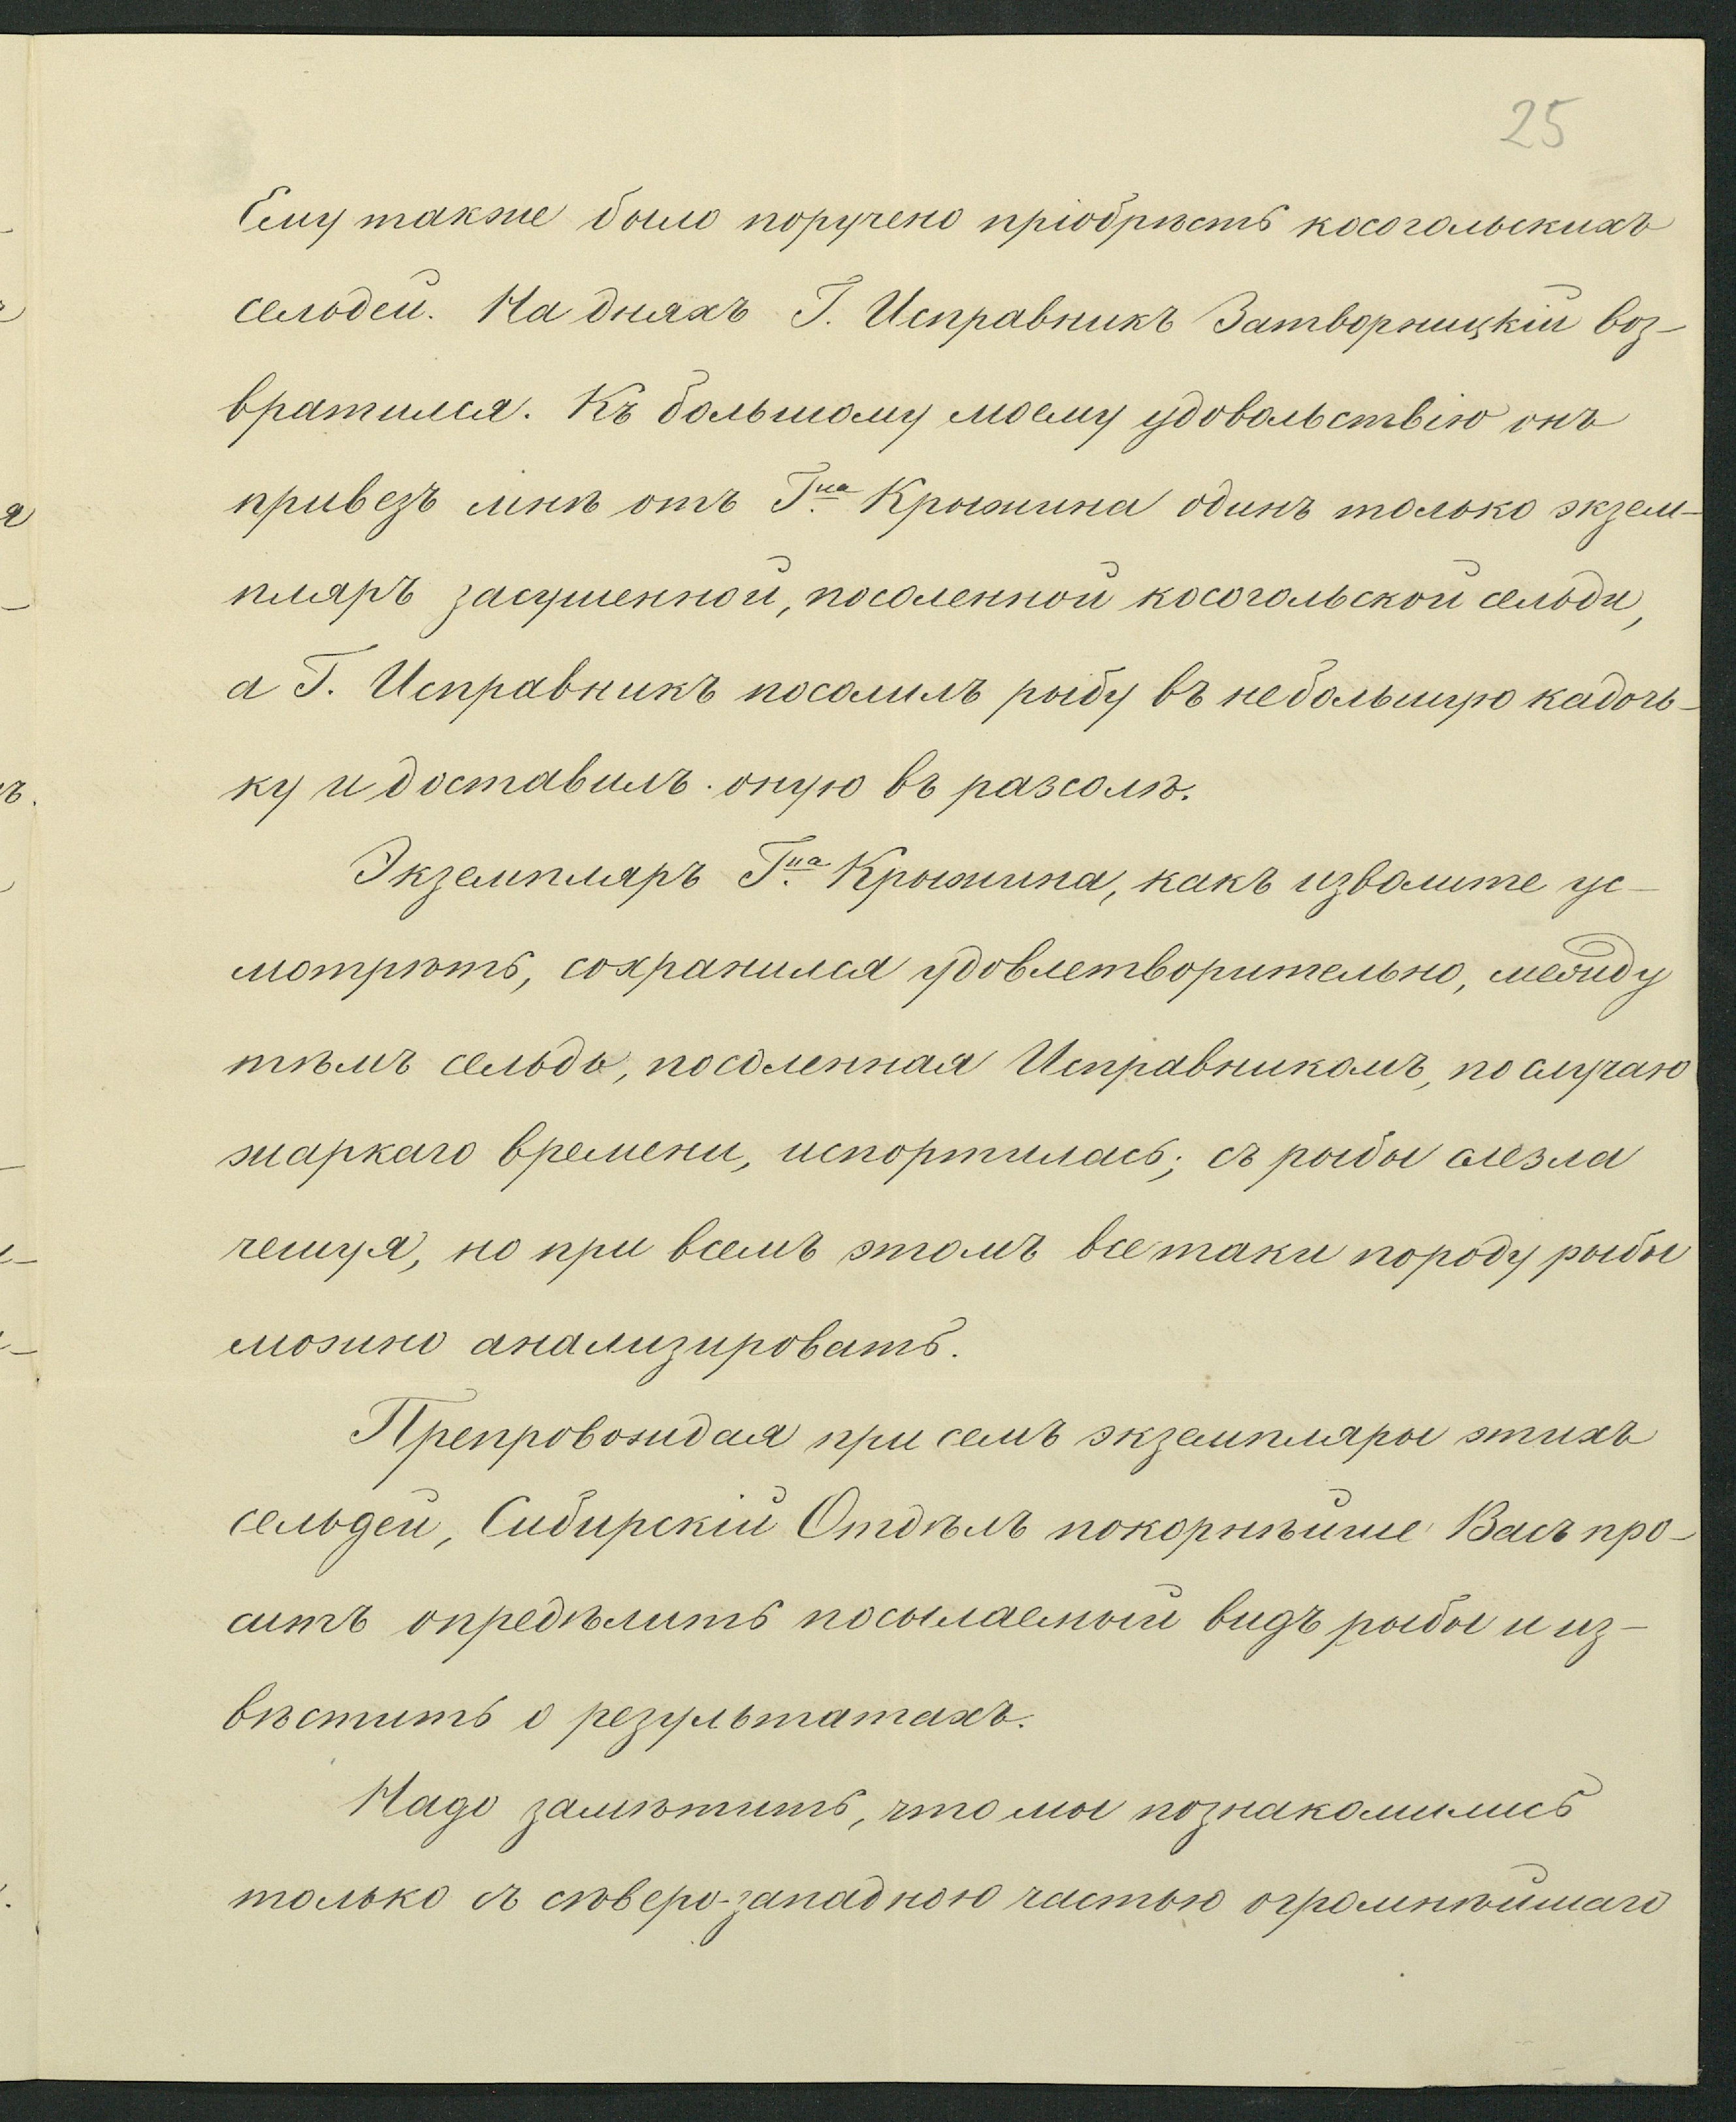 25
Ему также было поручено пріобрѣсть косогольскихъ
сельдей. На дняхъ Г. Исправникъ Затворницкій воз-
вратился. Къ большому моему удовольствію онъ
привезъ мнѣ отъ Г.на Крыжина одинъ только экзем-
пляръ засушенной, посоленной косогольской сельди,
а Г. Исправникъ посолилъ рыбу въ небольшую кадочь-
ку и доставилъ оную въ разсолѣ.
Экземпляръ Г.на Крыжина, какъ изволите ус-
мотрѣть, сохранился удовлетворительно, между
тѣмъ сельдь, посоленная Исправникомъ, по случаю
жаркаго времени, испортилась; съ рыбы слезла
чешуя, но при всемъ этомъ все таки породу рыбы
можно анализировать.
Препровождая при семъ экземпляры этихъ
сельдей, Сибирскій Отдѣлъ покорнѣйше Васъ про-
ситъ опредѣлить посылаемый видъ рыбы и из-
вѣстить о результатахъ.
Надо замѣтить, что мы познакомились
только съ сѣверо-западною частью огромнѣйшаго